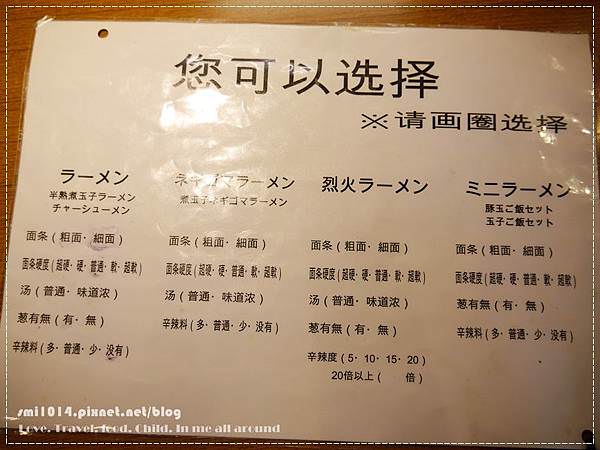 您可以选择
※请画圈选择
ラーメン
半熟煮玉子ラーメン
チャーシューメン
面条（粗面・細面）
面条硬度（超硬・硬・普通・軟・超軟）
汤（普通・味道浓）
葱有無（有・無）
辛辣料（多・普通・少・没有）
ネギゴマラーメン
煮玉子ネギゴマラーメン
面条（粗面・細面）
面条硬度（超硬・硬・普通・軟・超軟）
汤（普通・味道浓）
辛辣料（多・普通・少・没有）
烈火ラーメン
面条（粗面・細面）
面条硬度（超硬・硬・普通・軟・超軟）
汤（普通・味道浓）
葱有無（有・無）
辛辣度（5・10・15・20）
20倍以上（　　倍）
ミニラーメン
豚玉ご飯セット
玉子ご飯セット
面条（粗面・細面）
面条硬度（超硬・硬・普通・軟・超軟）
葱有無（有・無）
辛辣料（多・普通・少・没有）
smi1014.pixnet.net/blog
Love. Travel. food. Child. In me all around